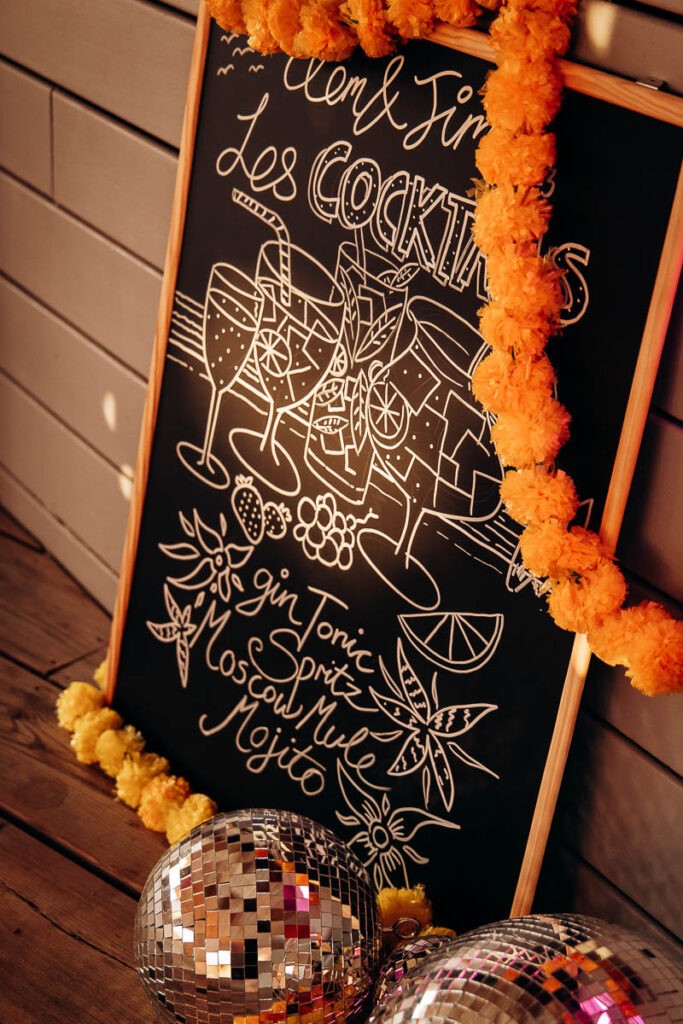 Clem & Jim
Les COCKTAILS
gin Tonic
Spritz
Moscow Mule
Mojito